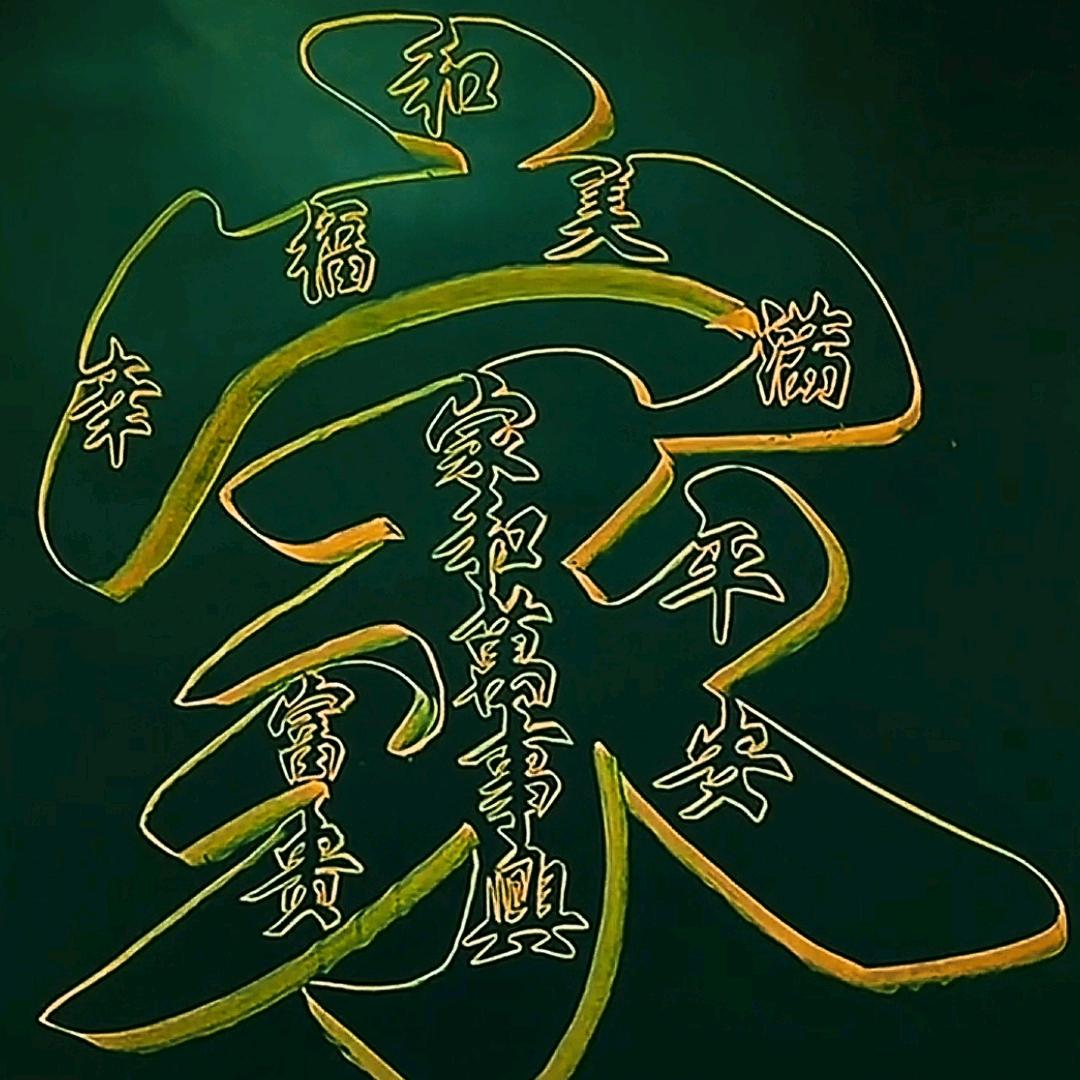 家
和
幸福
美满
家和萬事興
平安
富貴